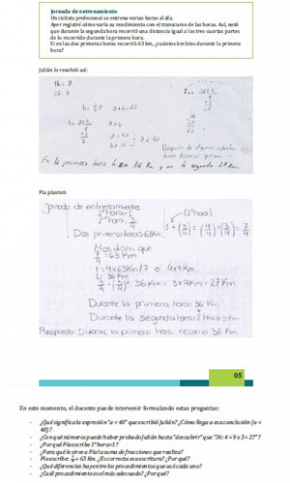 Jornada de entrenamiento
Un ciclista profesional se entrena varias horas al día.
Ayer registró cómo varía su rendimiento con el transcurso de las horas. Así, notó
que durante la segunda hora recorrió una distancia igual a las tres cuartas partes
de lo recorrido durante la primera hora.
Si en las dos primeras horas recorrió 63 km, ¿cuántos km hizo durante la primera
hora?
Julián lo resolvió así:
1h = ?
2h =
Después de algunos cálculos
En 4 primera hora 36 Km y en la segunda 27 Km.
Pía planteó:
Jornada de entrenamiento
1° hora: 1
2° hora: 3/4
(2° hora)
1 + (3/4) = (4/4) + (3/4) = 7/4
Dos primeras horas: 63 Km.
Nos dicen que
7/4 = 63 Km
1 = 4x63Km/7 o 4x9Km
1 = 36 Km
3/4 = (3/4) x 36 Km = 3x9Km = 27 Km
Durante la primera hora: 36 Km
Durante la segunda hora: 27 Km
Respuesta: Durante la primera hora recorrió 36 Km
05
En este momento, el docente puede intervenir formulando estas preguntas:
- ¿Qué significa la expresión "a < 40" que escribió Julián? ¿Cómo llega a esa conclusión (a <
40)?
- ¿Con qué números puede haber probado Julián hasta "descubrir" que "36: 4 = 9 x 3 = 27"?
- ¿Por qué Pía escribe 1° hora = 1?
- ¿Para qué le sirve a Pía la suma de fracciones que realiza?
- Pía escribe 7/4 = 63 Km. ¿Es correcta esa escritura? ¿Por qué?
- ¿Qué diferencias hay entre los procedimientos que usó cada uno?
- ¿Cuál procedimiento es el más adecuado? ¿Por qué?